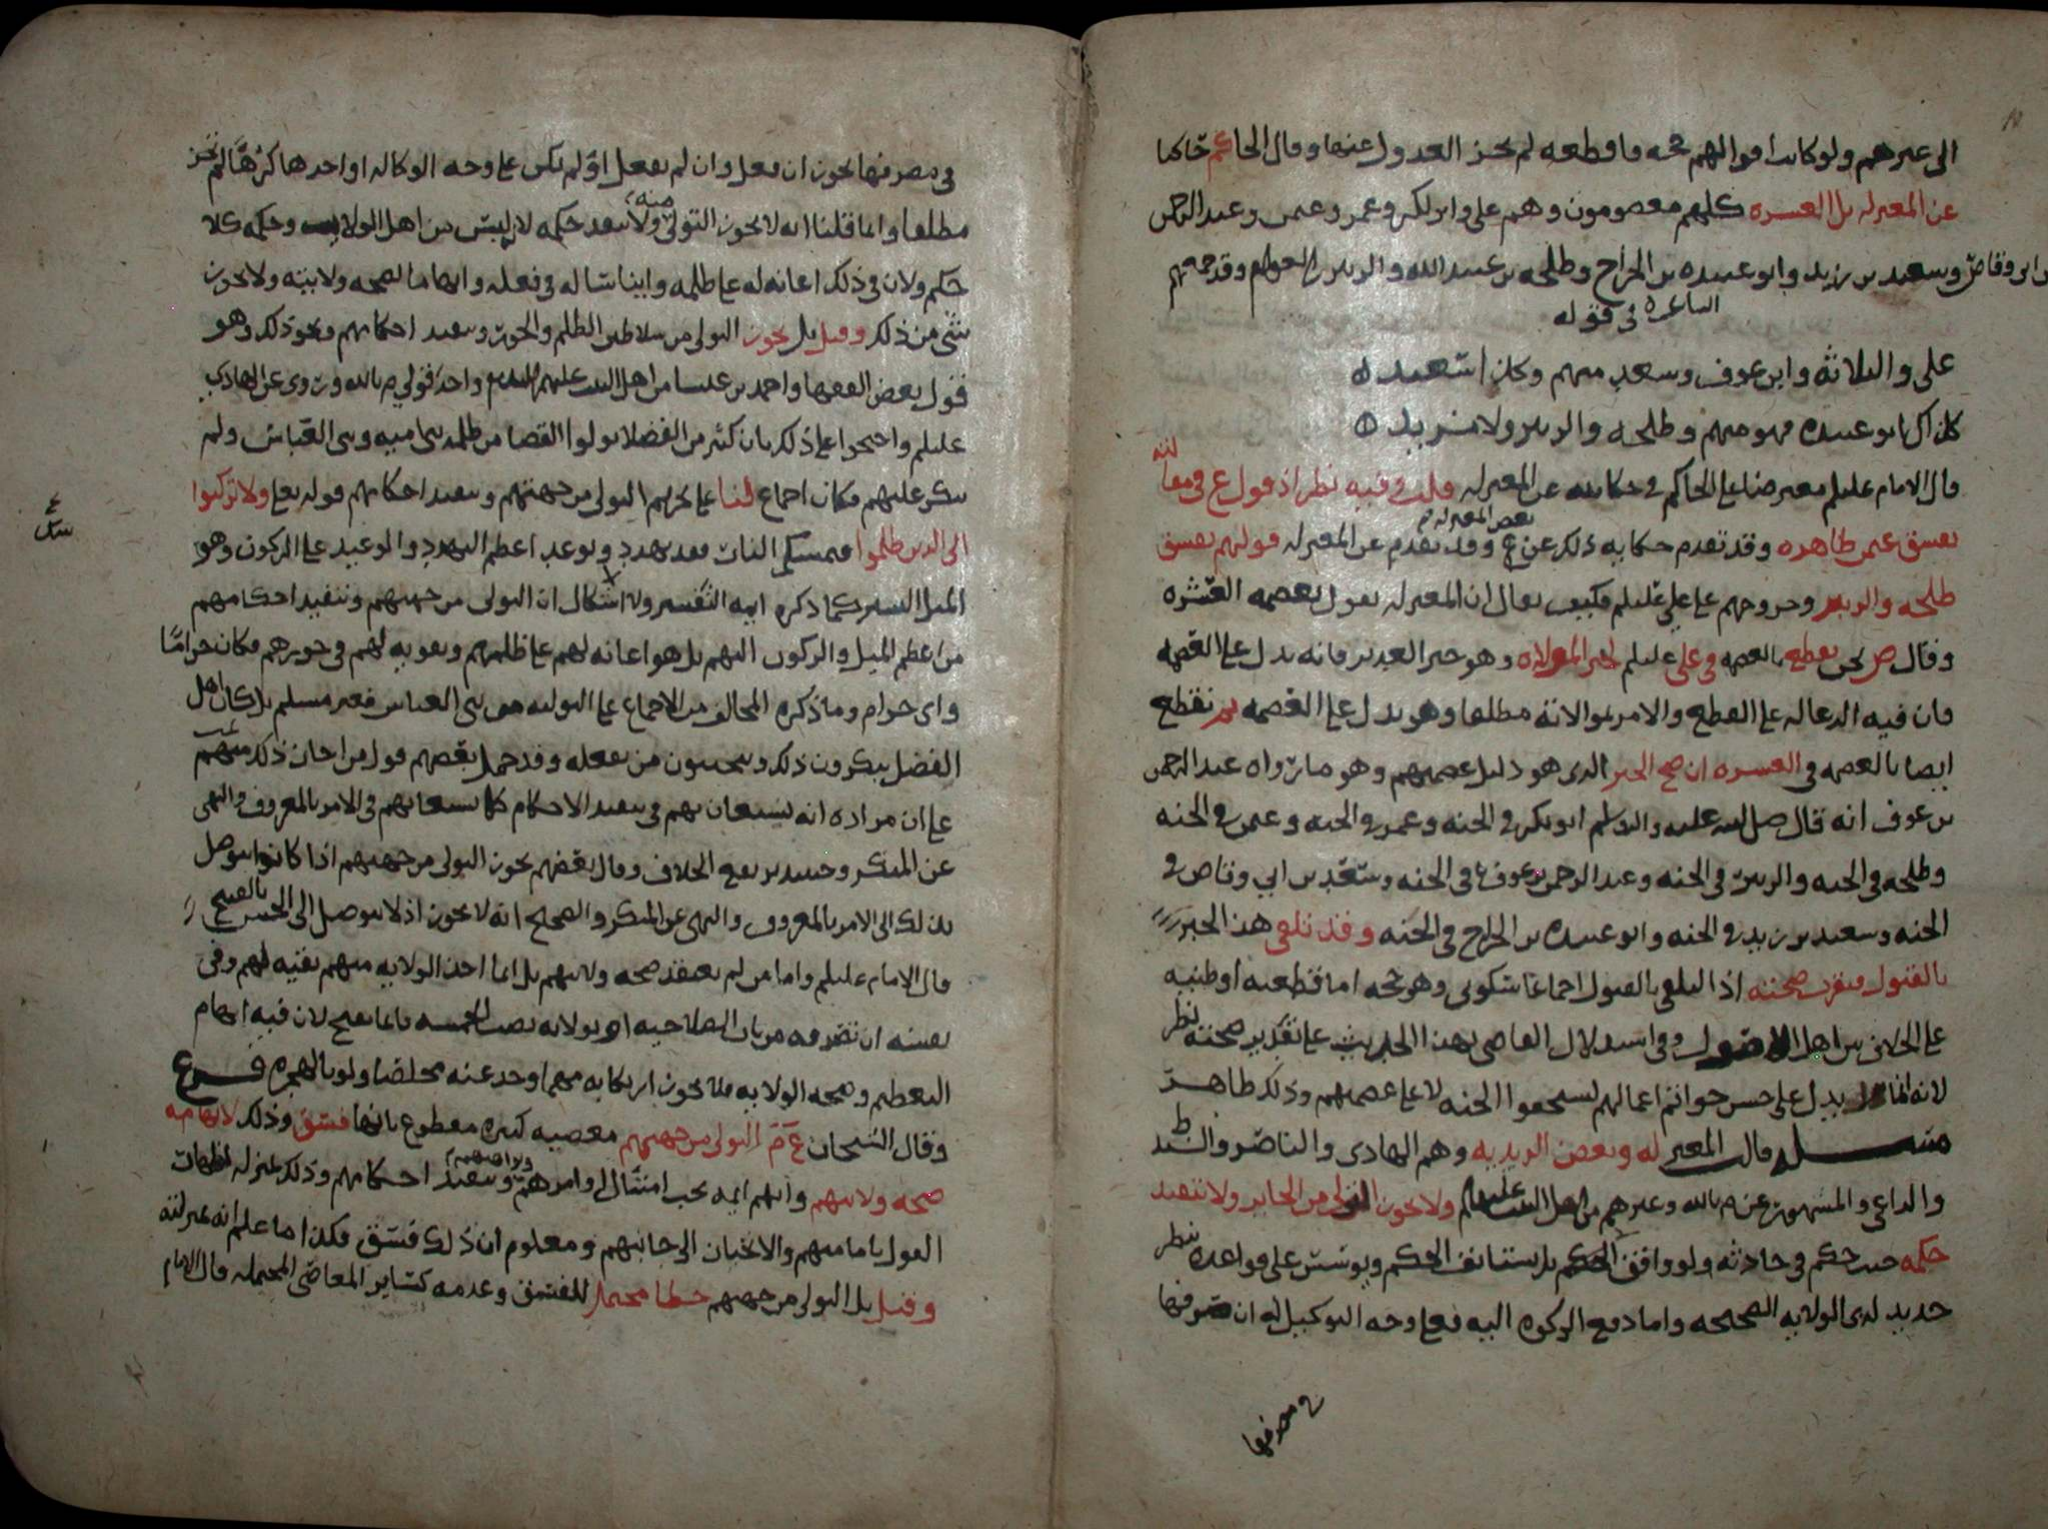 الى غيرهم ولو كانت اقوالهم حجه قاطعه لم يجز العدول عنها وقال الحاكم حاكيا
عن المعتزله بل العشره كلهم معصومون وهم علي وابو بكر وعمر وعثمن وعبد الرحمن
بن ابي وقاص وسعيد بن زيد وابو عبيده بن الجراح وطلحه بن عبيد الله والزبير بن العوام وقد جمعهم
الشاعر في قوله
علي والثلاثة وابن عوف وسعد منهم وكذا سعيد
كذاك ابو عبيده فهو منهم وطلحه والزبير ولا مزيد
قال الامام عليلم معترضا على الحاكم في حكايته عن المعتزله قلت وفيه نظر اذ قول ع في مقا
لته
بفسق عثمن ظاهره وقد تقدم حكايه ذلك عن ع وقد تقدم عن المعتزله قولهم بفسق
بعض المعتزله
طلحه والزبير وخروجهم على علي عليلم فكيف يقال ان المعتزله تقول بعصمه العشره
وقال ص نحن نقطع بالعصمه في علي عليلم لخبر الموالاه وهو خبر الغدير فانه يدل على العصمه
فان فيه الدعا له على القطع والامر بموالاته مطلقا وهو يدل على العصمه نقطع
ايضا بالعصمه في العشره ان صح الخبر الذي هو دليل عصمتهم وهو ما رواه عبد الرحمن
بن عوف انه قال صلى الله عليه واله وسلم ابو بكر في الجنه وعمر في الجنه وعثمن في الجنه
وطلحه في الجنه والزبير في الجنه وعبد الرحمن بن عوف في الجنه وسعد بن ابي وقاص في
الجنه وسعيد بن زيد في الجنه وابو عبيده بن الجراح في الجنه وقد تلقي هذا الخبر
بالقبول فتقرب صحته اذ التلقي بالقبول اجماعا سكوتي وهو حجه اما قطعيه او ظنيه
على الخلاف بين اهل الاصول وفي استدلال القاضي بهذا الحديث على تقدير صحته نظر
لانه انما يدل على حسن خواتم اعمالهم ليستحقوا الجنه لا على عصمتهم وذلك ظاهر
مسله قالت المعتزله وبعض الزيديه وهم الهادي والناصر والسيد ط
والداعي والمشهور عن م بالله وغيرهم من اهل البيت عليهم ولا يجوز التولي من الجاير ولا تنفيذ
حكمه حيث حكم في حادثه ولو وافق الحكم بل يستانف الحكم ويوسس على قواعده بنظر
جديد لذي الولايه الصحيحه واما دفع الزكوه اليه فعلى وجه التوكيل له ان صرفها
في مصرفها
في مصرفها يجوز ان فعل وان لم يفعل او لم يكن على وجه الوكاله او اخذها كرها لم يجز
مطلقا وانما قلنا انه لا يجوز التولي منه ولا ينفذ حكمه لانه ليس من اهل الولايه وحكمه كلا
حكم ولان في ذلك اعانه له على ظلمه وايناسا له في فعله وايهاما لصحه ولايته ولا يجوز
شي من ذلك وقيل بل يجوز التولي من سلاطين الظلم والجور وتنفيذ احكامهم ونحو ذلك وهو
قول بعض الفقها واحمد بن عيسا من اهل البيت عليهم السلم واحد قولي م بالله وروي عن الهادي
عليلم واحتجوا على ذلك بان كثير من الفضلا تولوا القضا من ظلمه بني اميه وبني العباس ولم
ينكر عليهم فكان اجماع لنا على تحريم التولي من جهتهم وتنفيذ احكامهم قوله تعلى ولا تركنوا
الى الذين ظلموا فتمسكم النار فقد تهدد وتوعد اعظم التهدد والوعيد على الركون وهو
الميل اليسير كما ذكره ايمه التفسير ولا اشكال ان التولي من جهتهم وتنفيذ احكامهم
من اعظم الميل والركون اليهم بل هو اعانه لهم على ظلمهم وتقويه لهم في جورهم فكان حراما
واي حرام وما ذكره المخالف من الاجماع على التوليه من بني العباس فغير مسلم بل كان اهل
الفضل ينكرون ذلك ويتعجبون من فعله وقد حمل بعضهم قول من اجاز ذلك منهم
على ان مراده انه يستعان بهم في تنفيذ الاحكام كما يستعان بهم في الامر بالمعروف والنهي
عن المنكر وحينئذ يرتفع الخلاف وقال بعضهم يجوز التولي من جهتهم اذا كان يتوصل
بذلك الى الامر بالمعروف والنهي عن المنكر والصحيح انه لا يجوز اذ لا يتوصل الى الحسن بالقبيح
قال الامام عليلم واما من لم يعتقد صحه ولايتهم بل انما اخذ الولايه منهم تقيه لهم وفي
نفسه ان تصرفه من باب الصلاحيه او بولايه نصب الخمسه فانما يقبح لان فيه ايهام
التعظيم وصحه الولايه فلا يجوز ارتكابه مهما وجد عنه مخلصا ولو بالهجره فرع
وقال الشيخان ع م التولي من جهتهم معصيه كبيره مقطوع بانها فسق وذلك لايهامه
صحه ولايتهم وانهم ايمه يجب امتثال اوامرهم ونواهيهم وتنفيذ احكامهم وذلك بمنزله اظهار
القول بامامتهم والانحياز الى جانبهم ومعلوم ان ذلك فسق فكذا ما علم انه بمنزلته
وقيل بل التولي من جهتهم خطا محتمل للفسق وعدمه كساير المعاصي المحتمله قال الامام